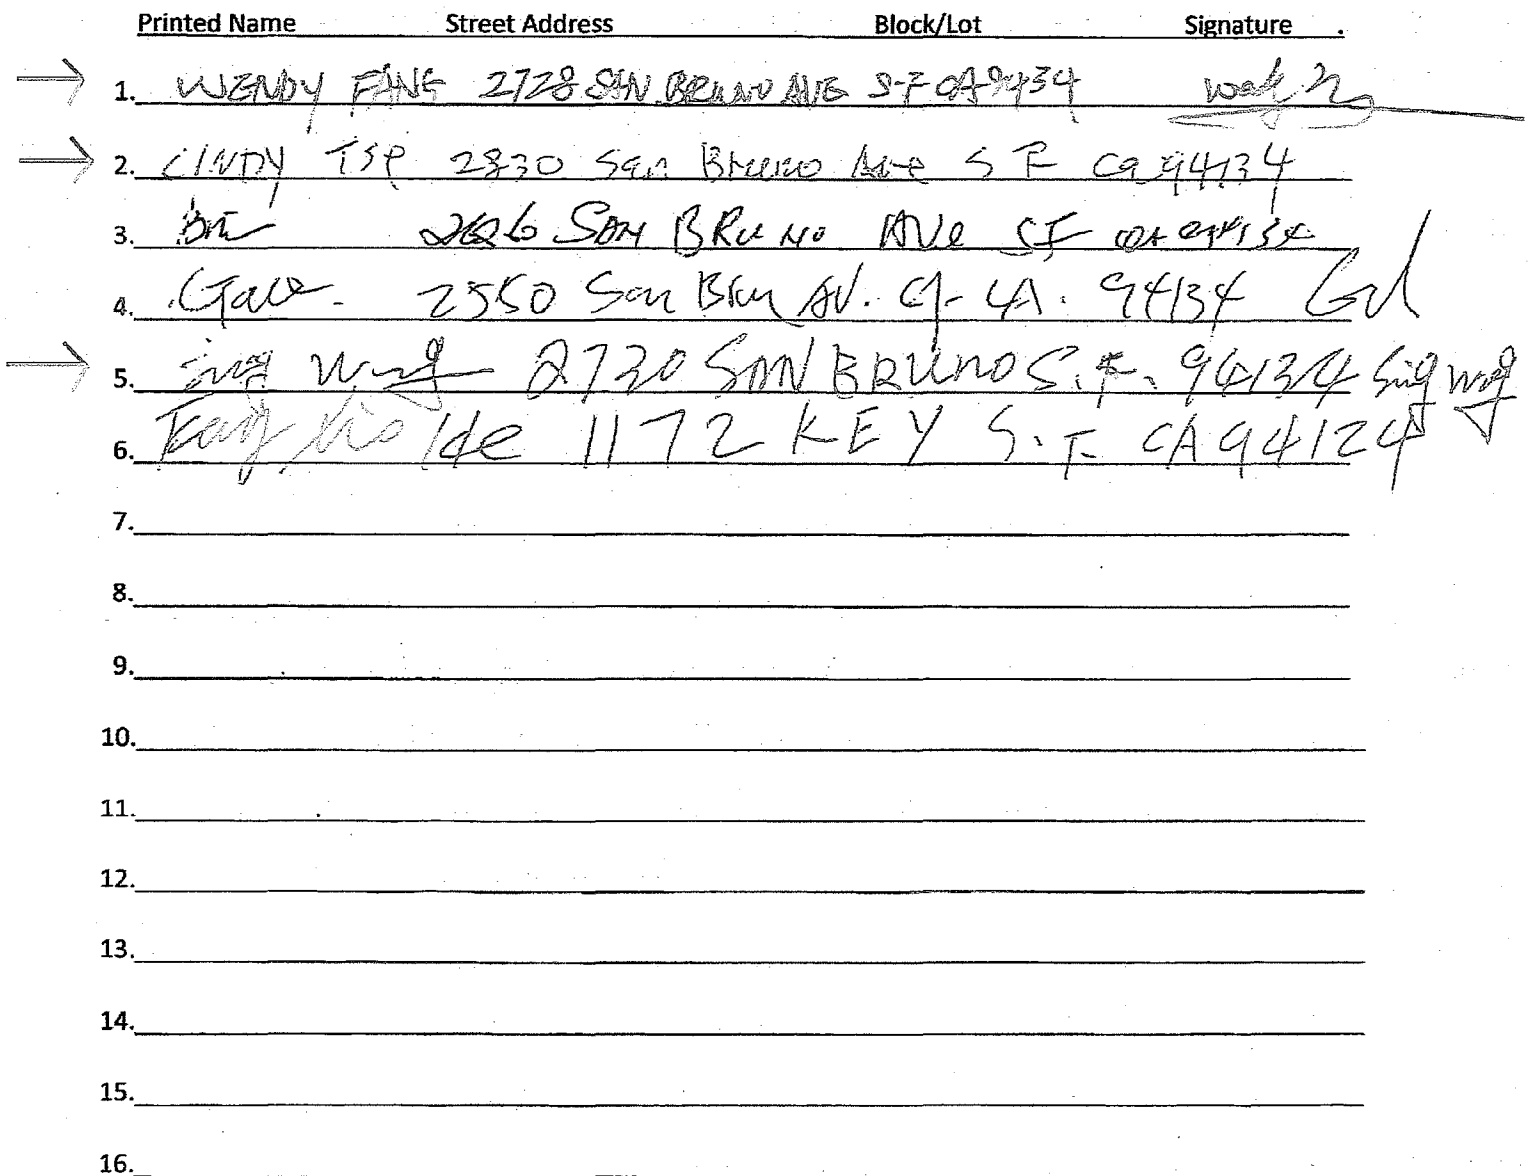 Printed Name Street Address Block/Lot Signature
1. WENDY FANG 2728 SAN BRUNO AVE S-F CA 9434
2. CINDY TSE 2830 San Bruno Ave S F Ca 94134
3. 2626 SAN BRUNO AVe SF CA 94134
4. 2550 San Brun AV. CA. 94134
5. 2730 SAN BRUNO S.F. 94134 Sing Wong
6. 1172 KEY S.F CA 94124
7.
8.
9.
10.
11.
12.
13.
14.
15.
16.